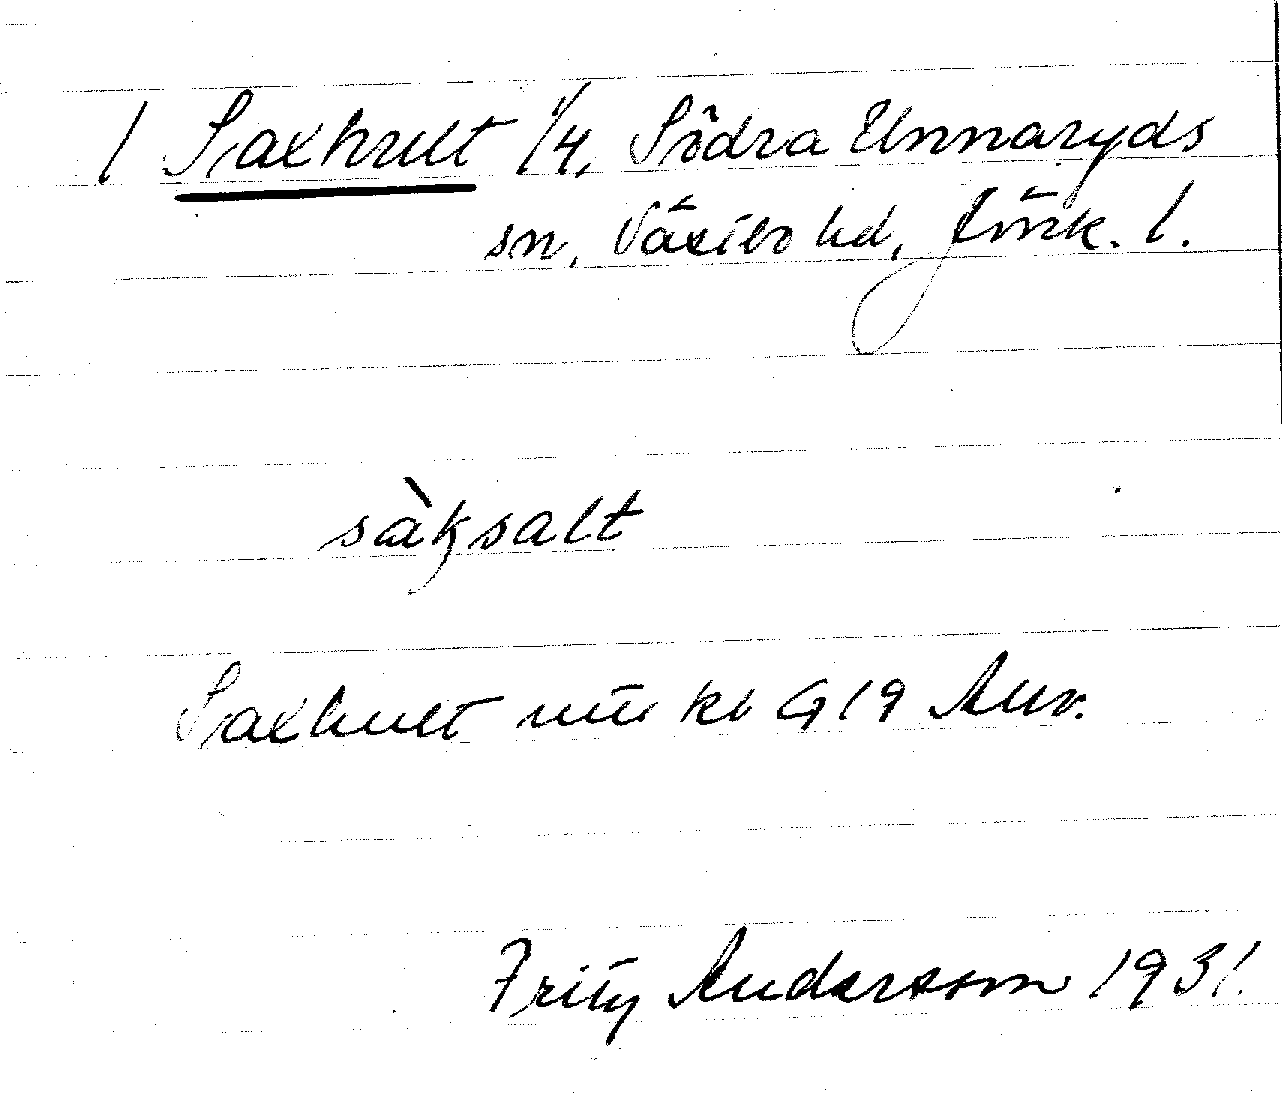 1 Saxhult 1/4, Södra Unnaryds
sn, Västbo hd, Jönk. l.
sàksalt
Saxhult mtl kb G 19 Anv.
Fritz Andersson 1931.